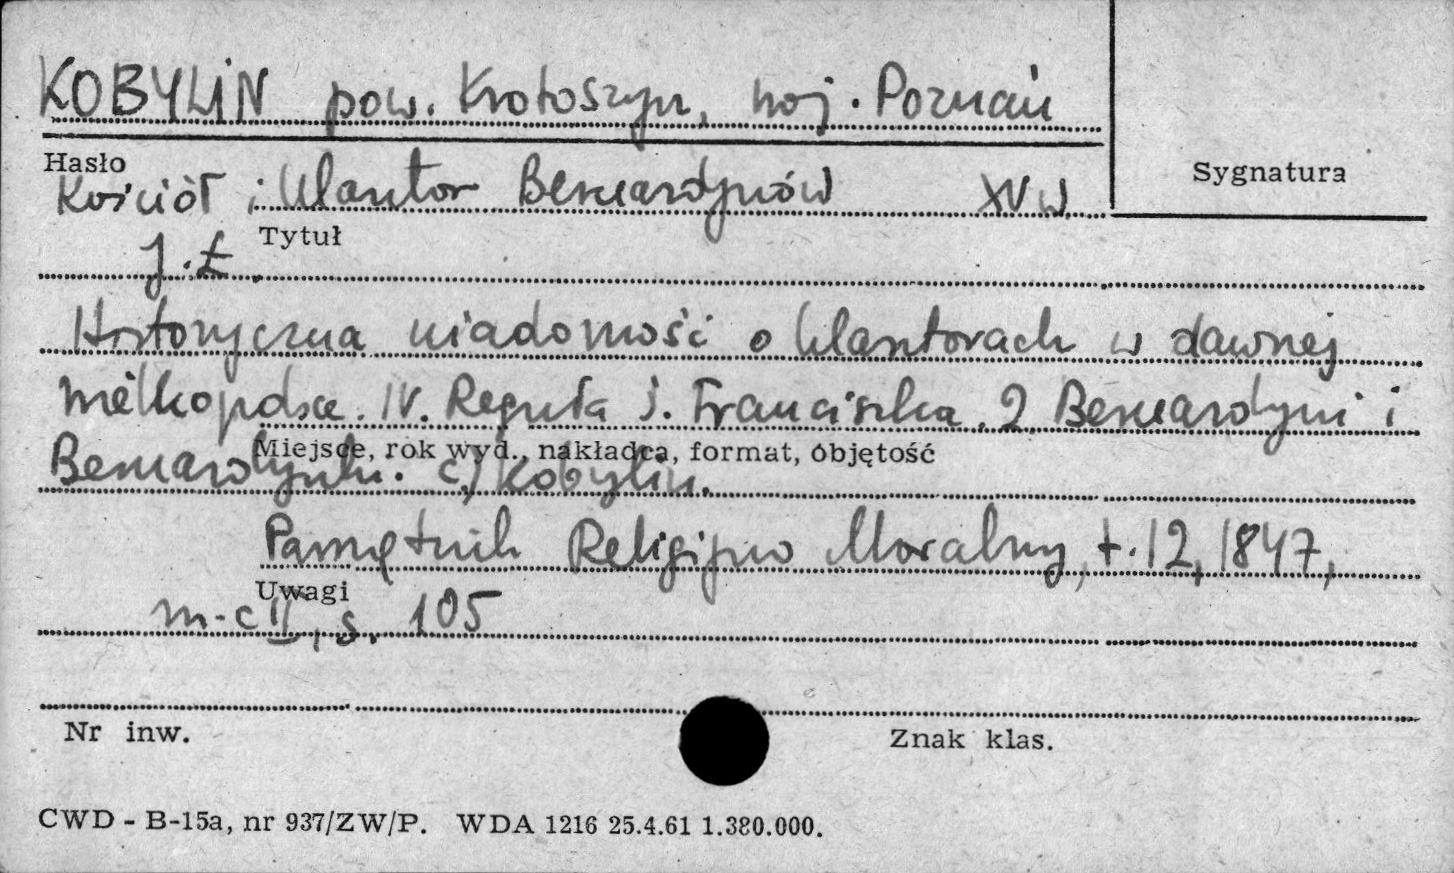 KOBYLIN pow. Krotoszyn, woj. Poznań
Hasło
Sygnatura
Kościół i klasztor Bernardynów XV w.
Tytuł
J. Ł.
Historyczna wiadomość o klasztorach w dawnej
Wielkopolsce. IV. Reguła s. Franciszka. 2. Bernardyni i
Miejsce, rok wyd., nakładca, format, objętość
Bernardynki. c) Kobylin.
Pamiętnik Religijno Moralny, t. 12, 1847,
Uwagi
m-c II, s. 105
Nr inw.
Znak klas.
CWD - B-15a, nr 937/ZW/P. WDA 1216 25.4.61 1.380.000.